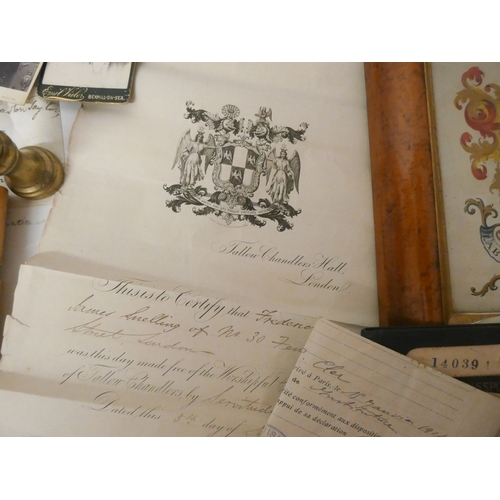 Emil Vieler
BEXHILL-ON-SEA
Tallow Chandlers Hall,
London
This is to Certify that Frederic
James Snelling of No 30 Fen
Street, London
was this day made free of the Worshipful
of Tallow Chandlers by Servitude
Dated this 8th day of
14039
rivé à Paris, le
1911
de
ité conformément aux disposition
appui de sa déclaration